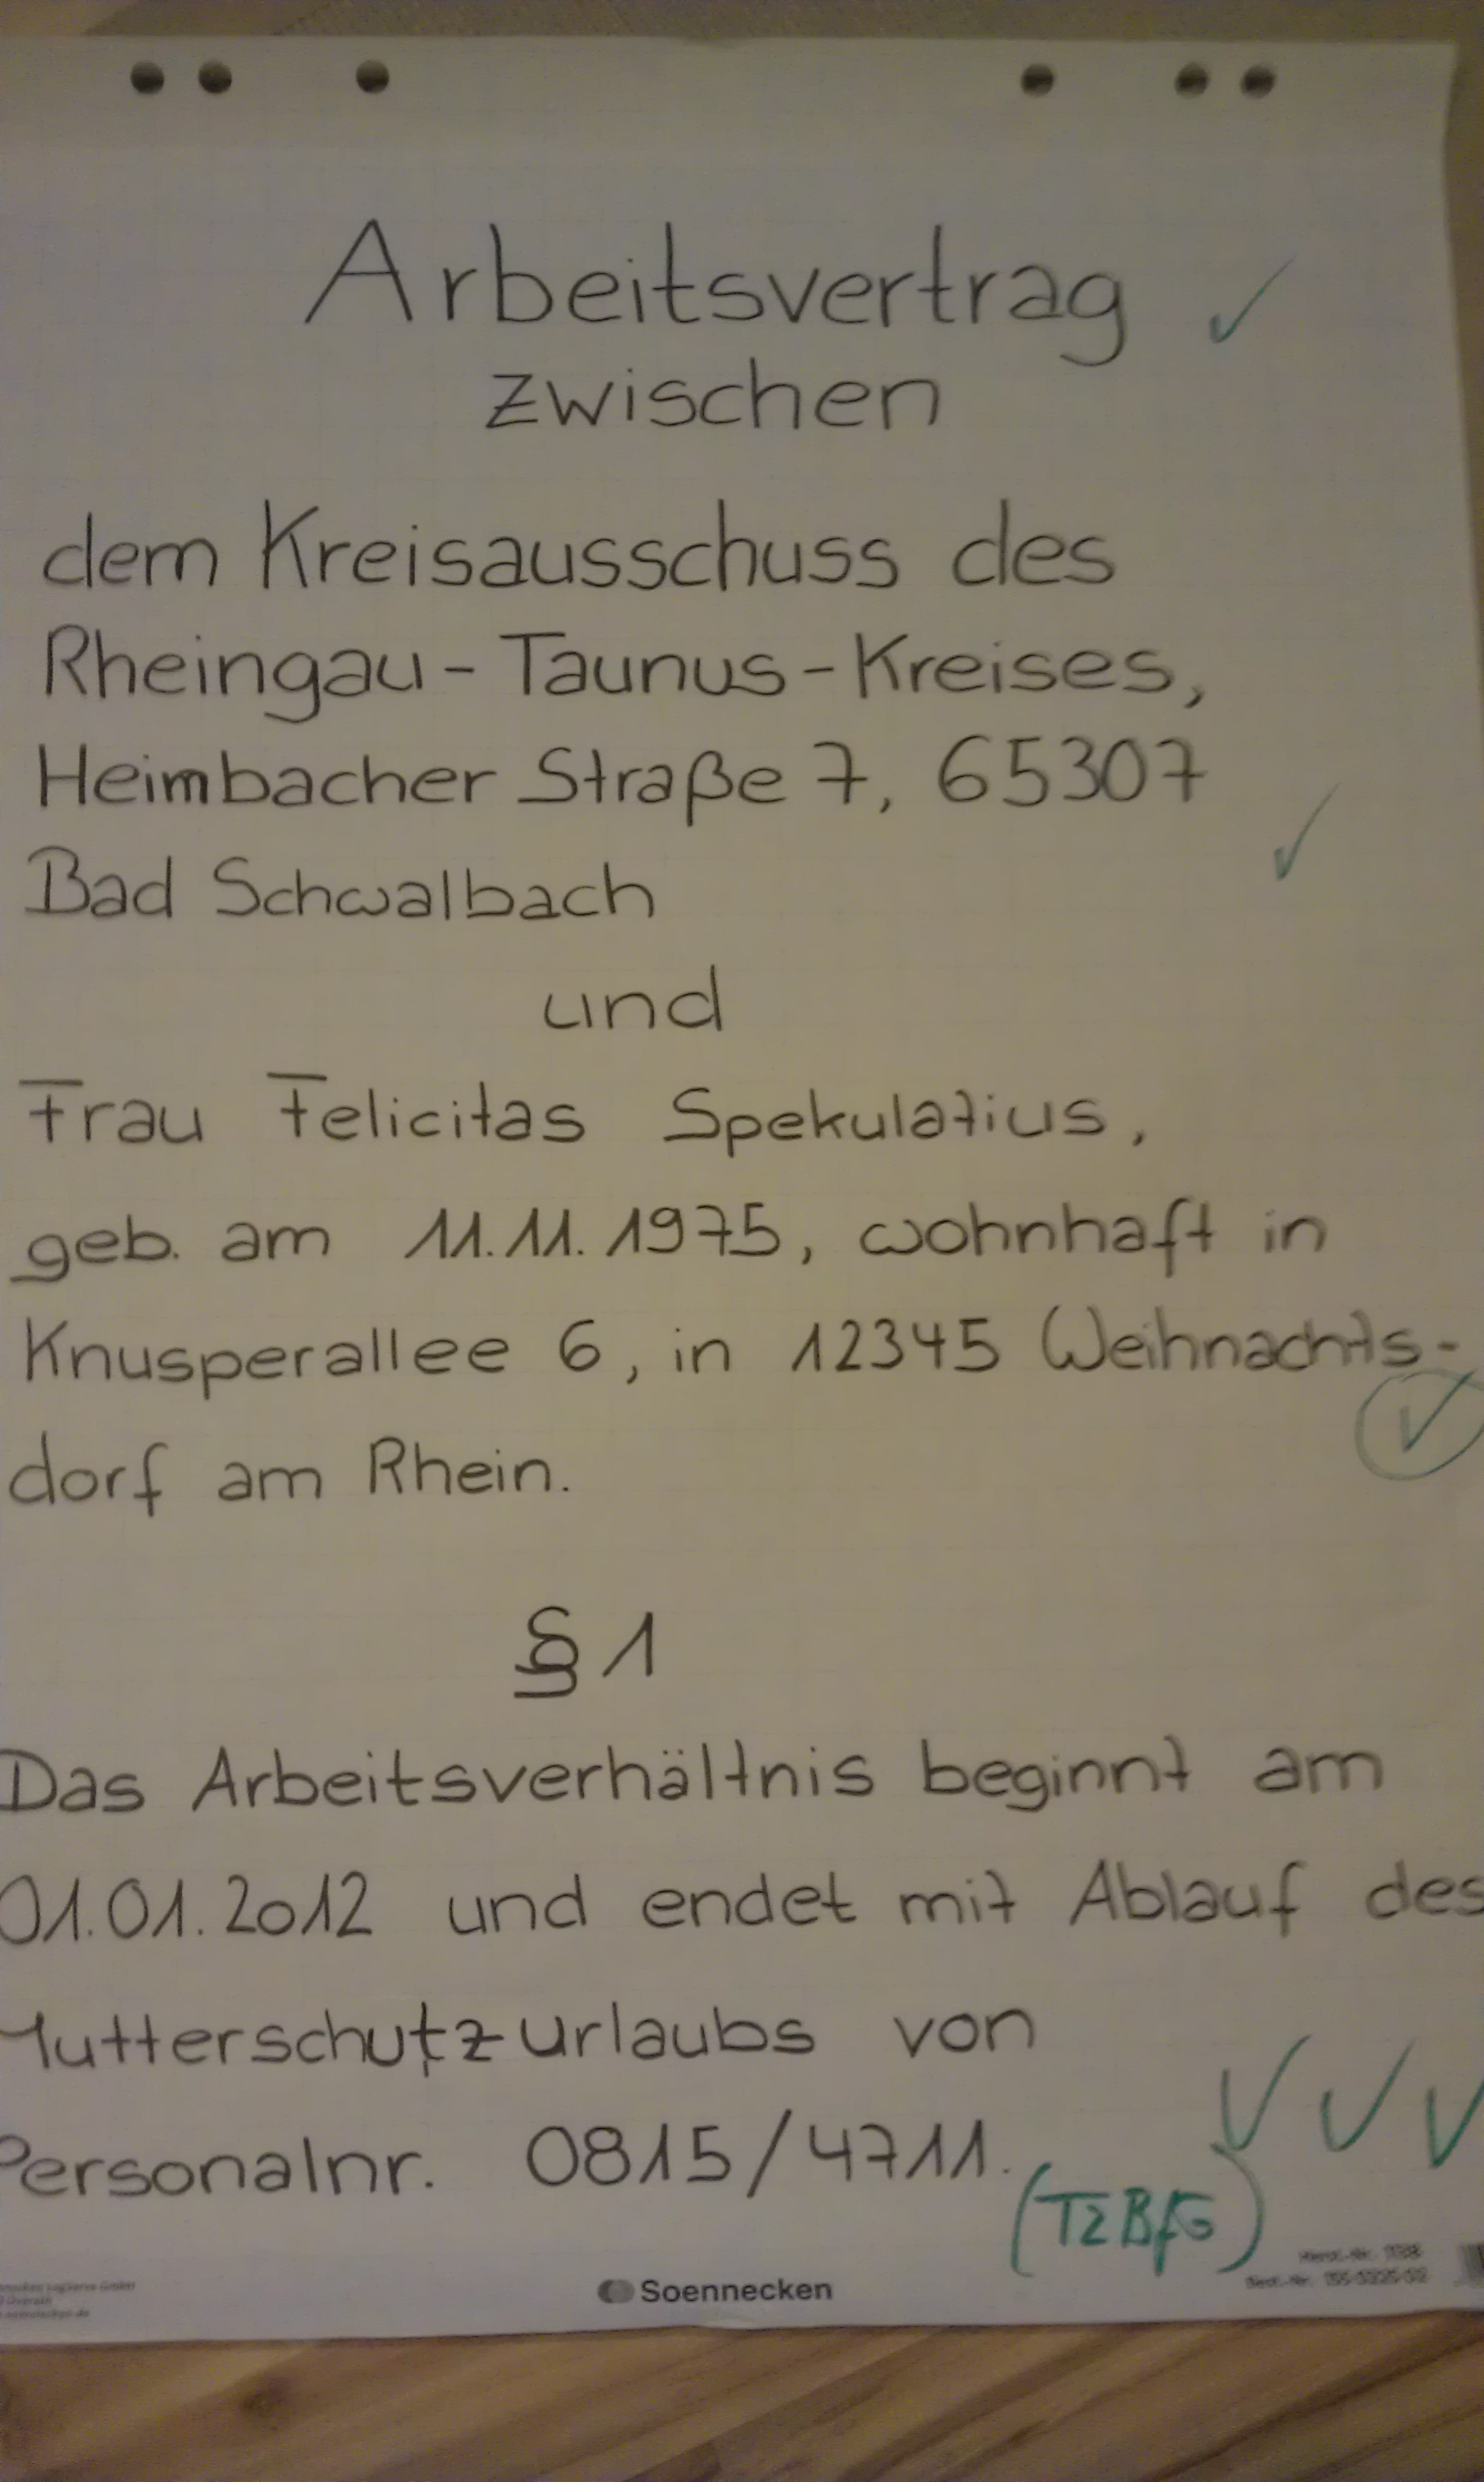 Arbeitsvertrag ✓
zwischen
dem Kreisausschuss des
Rheingau-Taunus-Kreises,
Heimbacher Straße 7, 65307
Bad Schwalbach ✓
und
Frau Felicitas Spekulatius,
geb. am 11.11.1975, wohnhaft in
Knusperallee 6, in 12345 Weihnachts-
dorf am Rhein. ✓
§ 1
Das Arbeitsverhältnis beginnt am
01.01.2012 und endet mit Ablauf des
Mutterschutzurlaubs von
Personalnr. 0815/4711. ✓ ✓ ✓
(TzBfG)
Soennecken